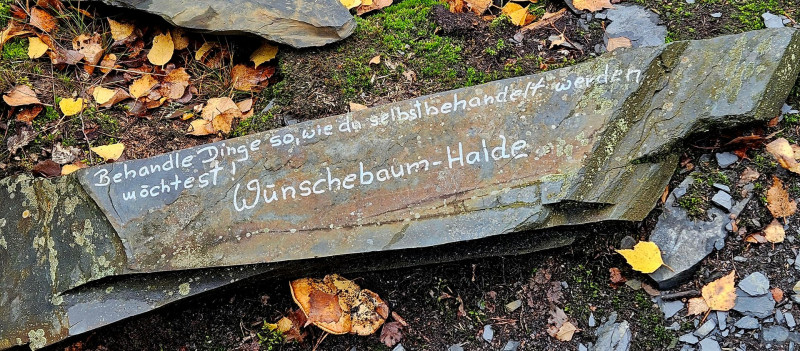 Behandle Dinge so, wie du selbstbehandelt werden
möchtest!
Wünschebaum-Halde